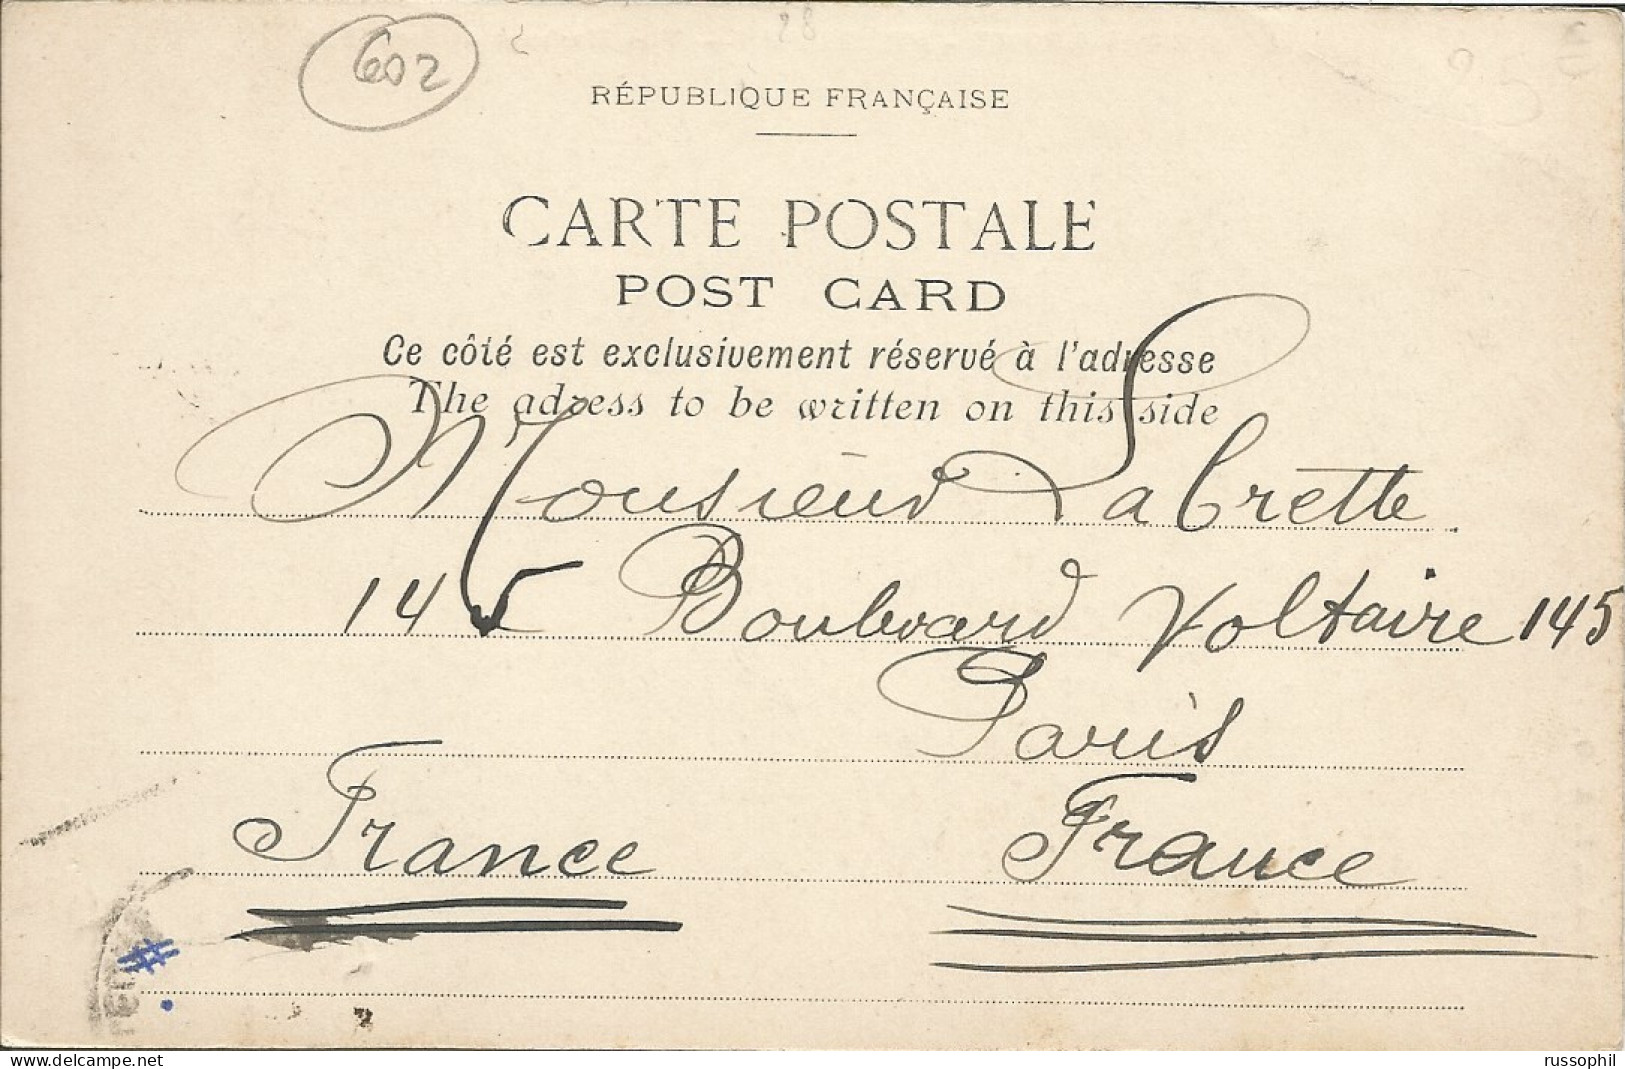 602
RÉPUBLIQUE FRANÇAISE
CARTE POSTALE
POST CARD
Ce côté est exclusivement réservé à l'adresse
The adress to be written on this side
Monsieur Labrette
145 Boulevard Voltaire 145
Paris
France France
www.delcampe.net
russophil